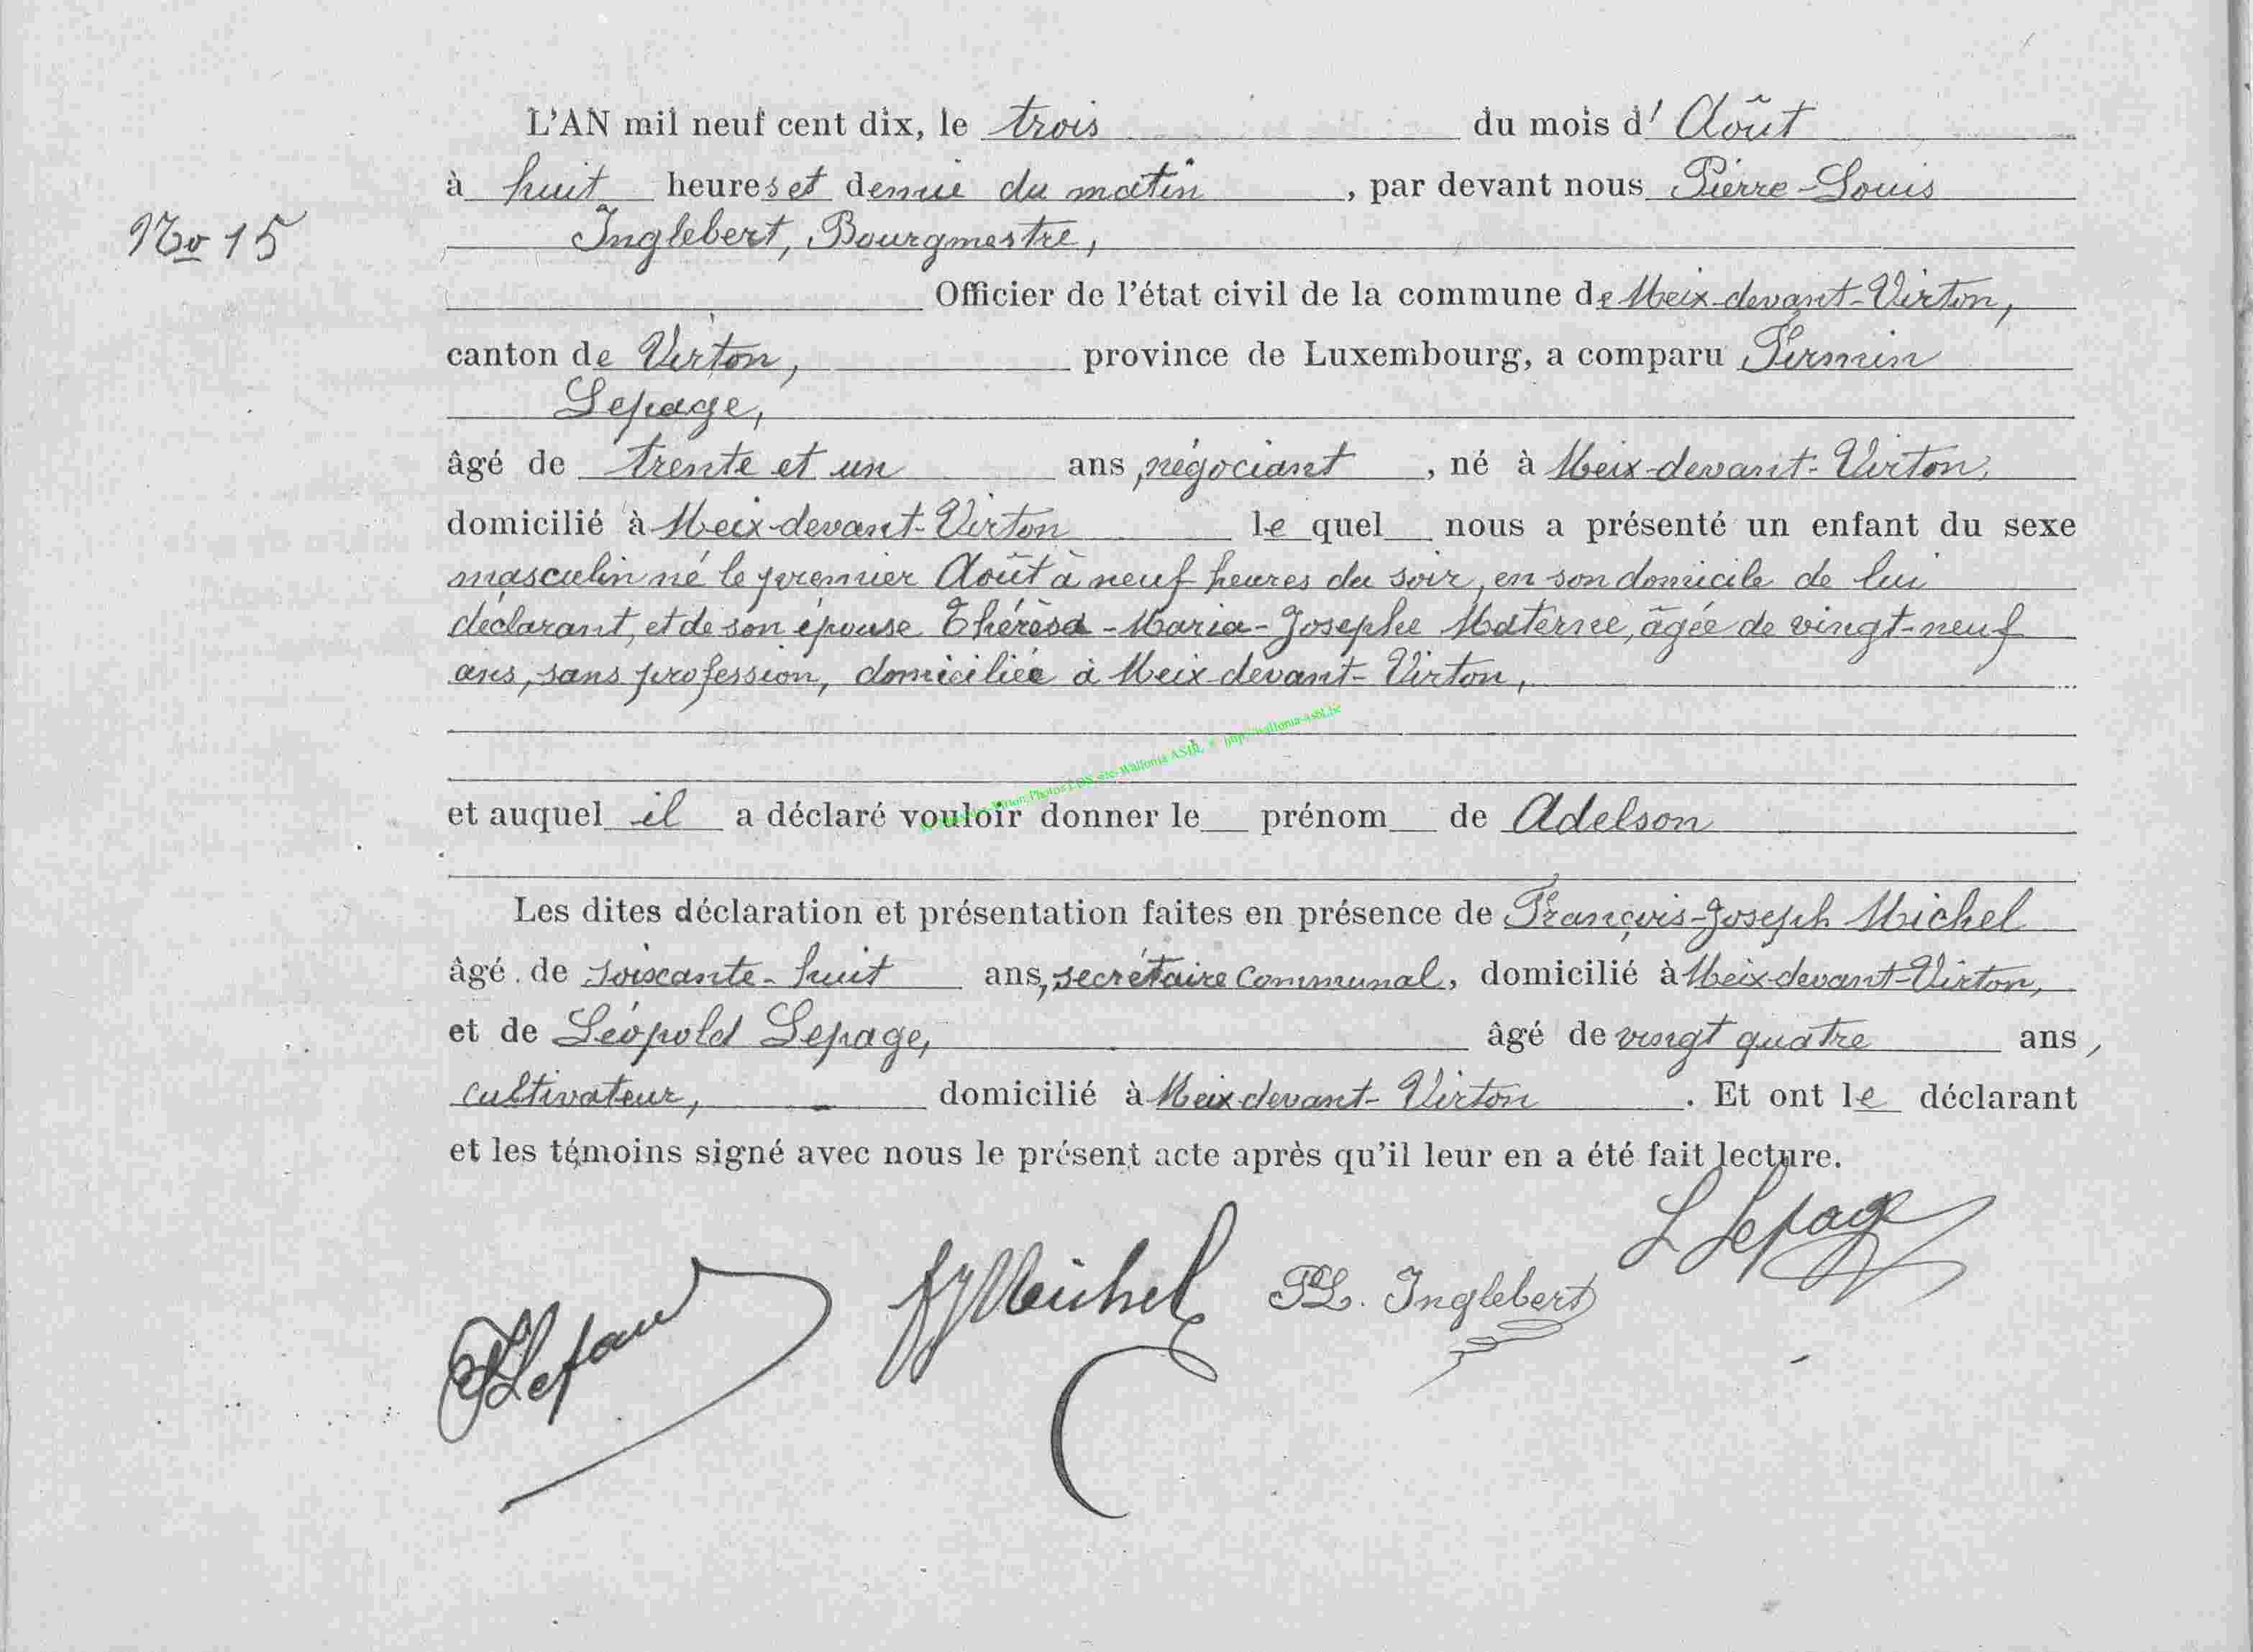 L'AN mil neuf cent dix, le trois du mois d' Août
à huit heures et demie du matin, par devant nous Pierre-Louis
No 15
Inglebert, Bourgmestre,
Officier de l'état civil de la commune de Meix-devant-Virton,
canton de Virton, province de Luxembourg, a comparu Firmin
Lepage,
âgé de trente et un ans, négociant, né à Meix-devant-Virton,
domicilié à Meix-devant-Virton le quel nous a présenté un enfant du sexe
masculin né le premier Août à neuf heures du soir, en son domicile de lui
déclarant, et de son épouse Thérèsa-Maria-Josephe Materne, âgée de vingt-neuf
ans, sans profession, domiciliée à Meix-devant-Virton,
et auquel il a déclaré vouloir donner le prénom de Adelson
Les dites déclaration et présentation faites en présence de François-Joseph Michel
âgé de soixante-huit ans, secrétaire communal, domicilié à Meix-devant-Virton,
et de Léopold Lepage, âgé de vingt quatre ans,
cultivateur, domicilié à Meix-devant-Virton. Et ont le déclarant
et les témoins signé avec nous le présent acte après qu'il leur en a été fait lecture.
L Lepage
FJ Michel PL. Inglebert